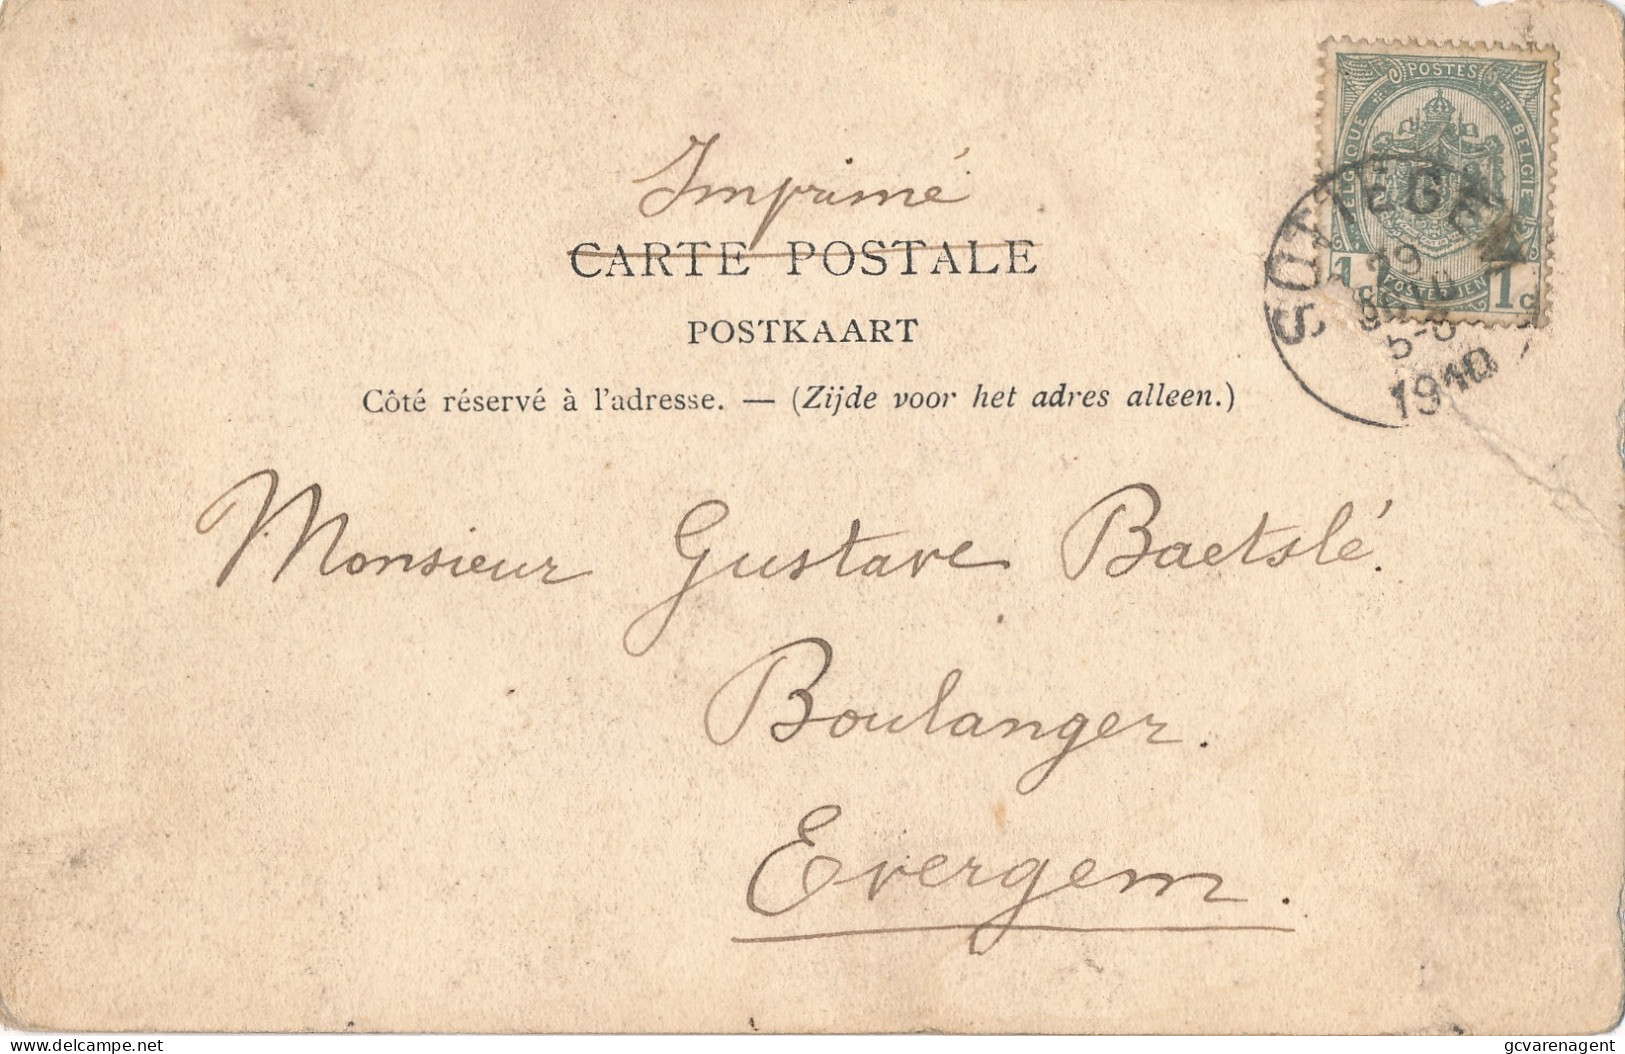 Imprimé
CARTE POSTALE
POSTKAART
Côté réservé à l'adresse. — (Zijde voor het adres alleen.)
POSTES
BELGIQUE
BELGIË
POSTERIJEN
1c 1c
SOTTEGEM
29
5-6
1910
Monsieur Gustave Baetslé.
Boulanger.
Evergem.
delcampe.net
gcvarenagent